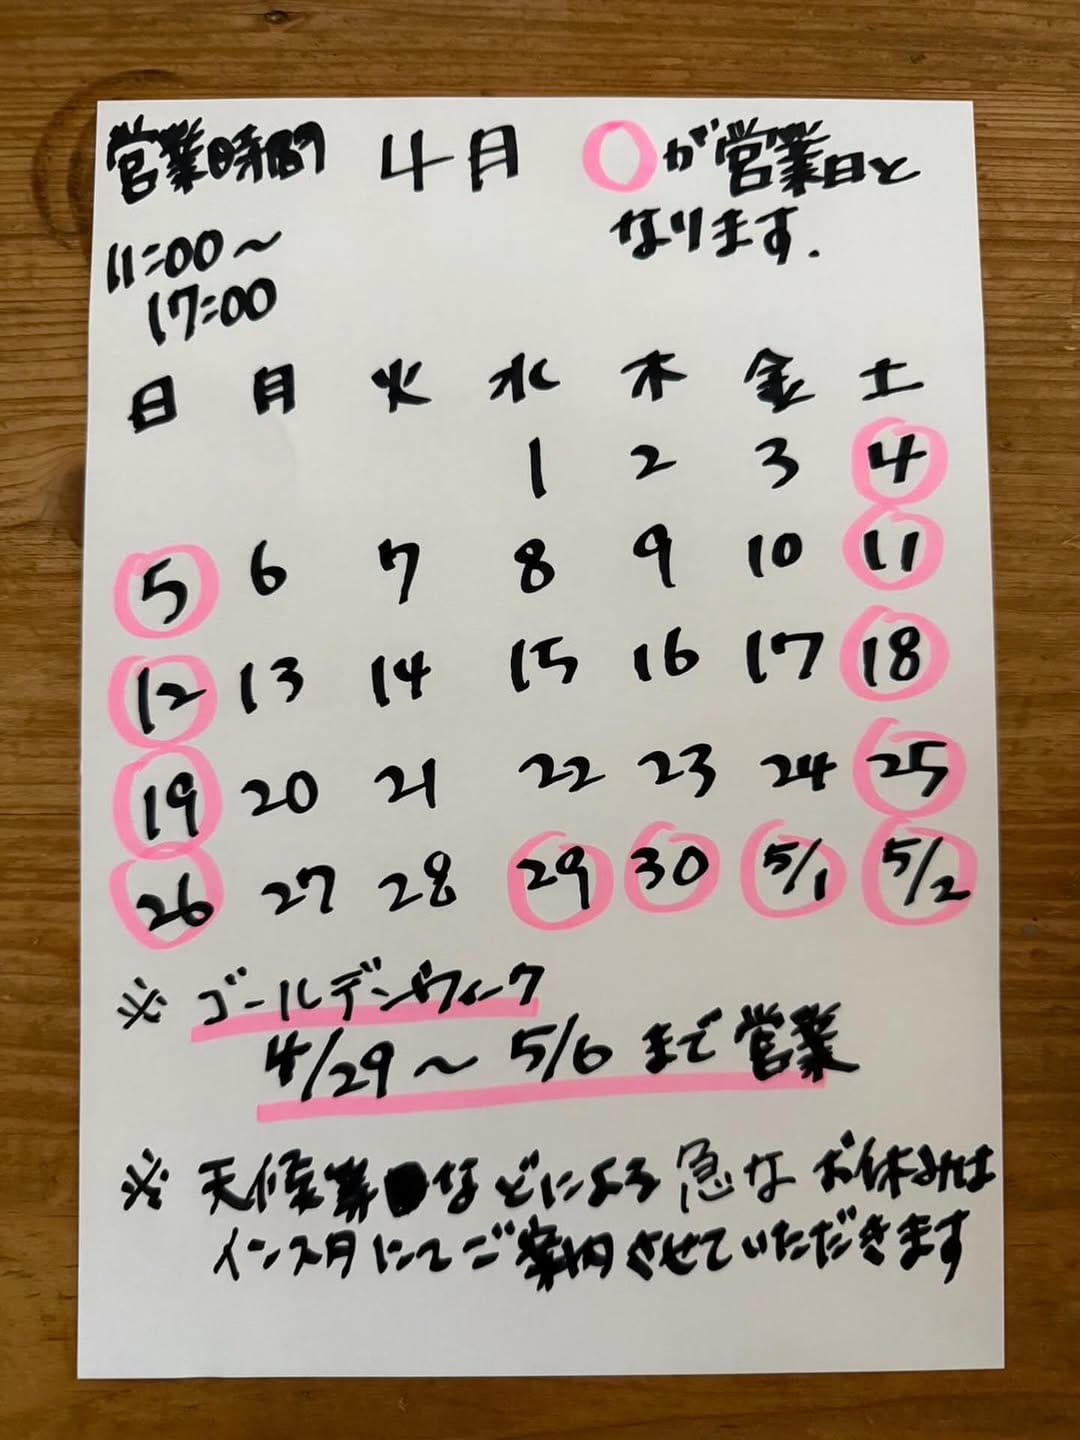 営業時間 4月 ○が営業日と
なります.
11:00〜
17:00
日 月 火 水 木 金 土
1 2 3 4
5 6 7 8 9 10 11
12 13 14 15 16 17 18
19 20 21 22 23 24 25
26 27 28 29 30 5/1 5/2
※ ゴールデンウィーク
4/29 〜 5/6 まで営業
※ 天候などによる急なお休みは
インスタにてご案内させていただきます